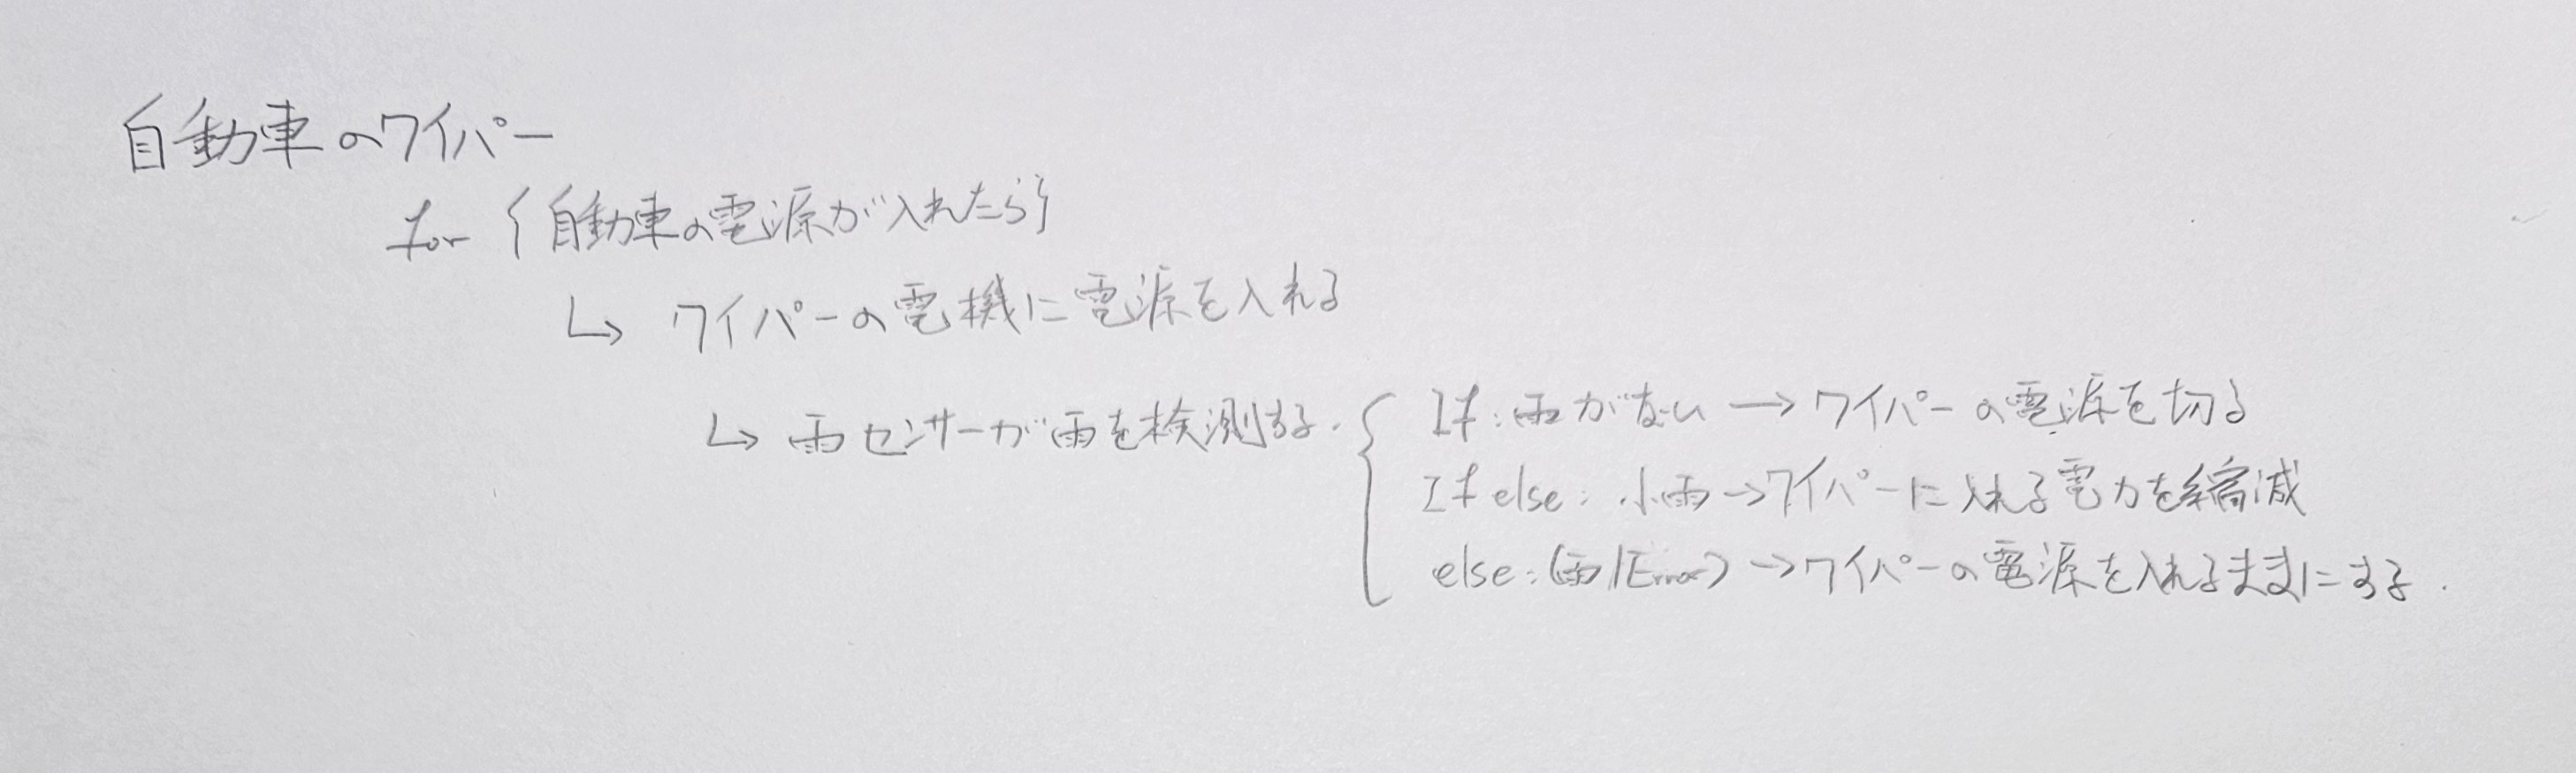 自動車のワイパー
for {自動車の電源が入れたら}
↳ ワイパーの電機に電源を入れる
↳ 雨センサーが雨を検測する.
If : 雨がない → ワイパーの電源を切る
If else : 小雨 → ワイパーに入れる電力を縮減
else : (雨/Error) → ワイパーの電源を入れるままにする.